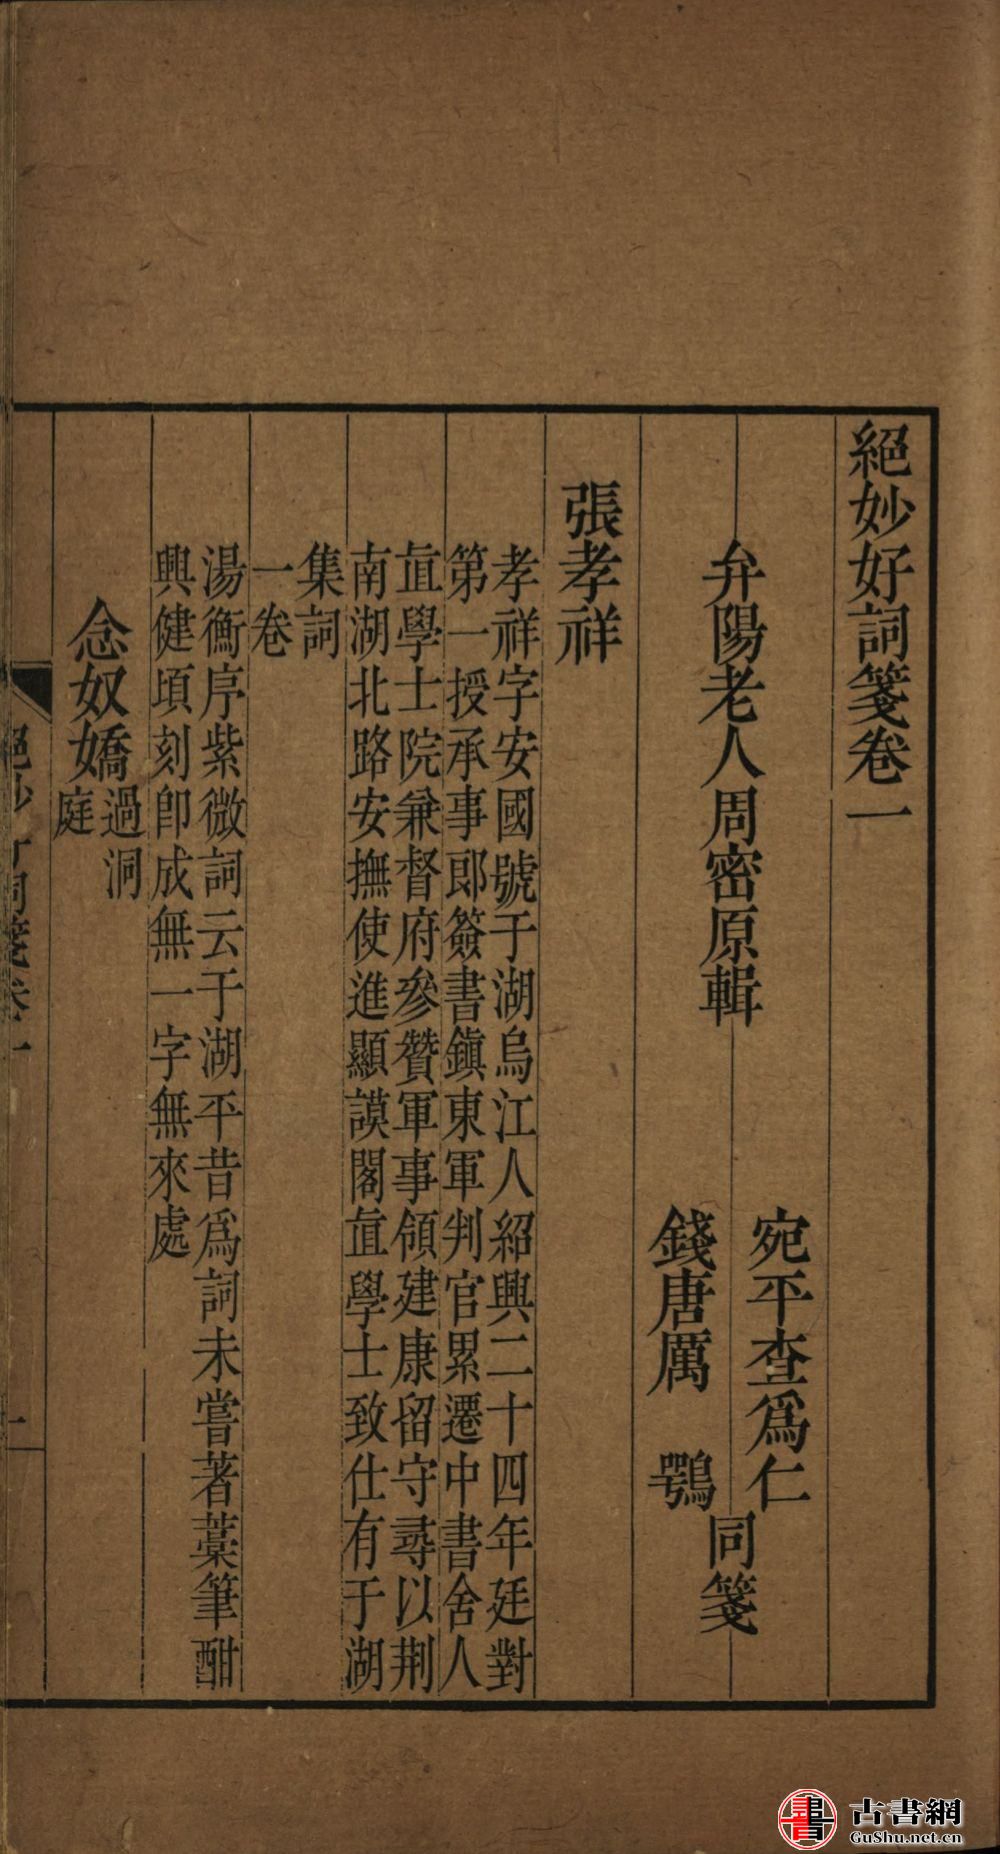 絕妙好詞箋卷一
弁陽老人周密原輯
宛平查爲仁
錢唐厲　鶚
同箋
張孝祥
孝祥字安國號于湖烏江人紹興二十四年廷對
第一授承事郎簽書鎭東軍判官累遷中書舍人
直學士院兼督府參贊軍事領建康留守尋以荆
南湖北路安撫使進顯謨閣直學士致仕有于湖
集詞
一卷
湯衡序紫微詞云于湖平昔爲詞未嘗著藁筆酣
興健頃刻卽成無一字無來處
念奴嬌
過洞
庭
絕妙好詞箋卷一
一
古書網
GuShu.net.cn